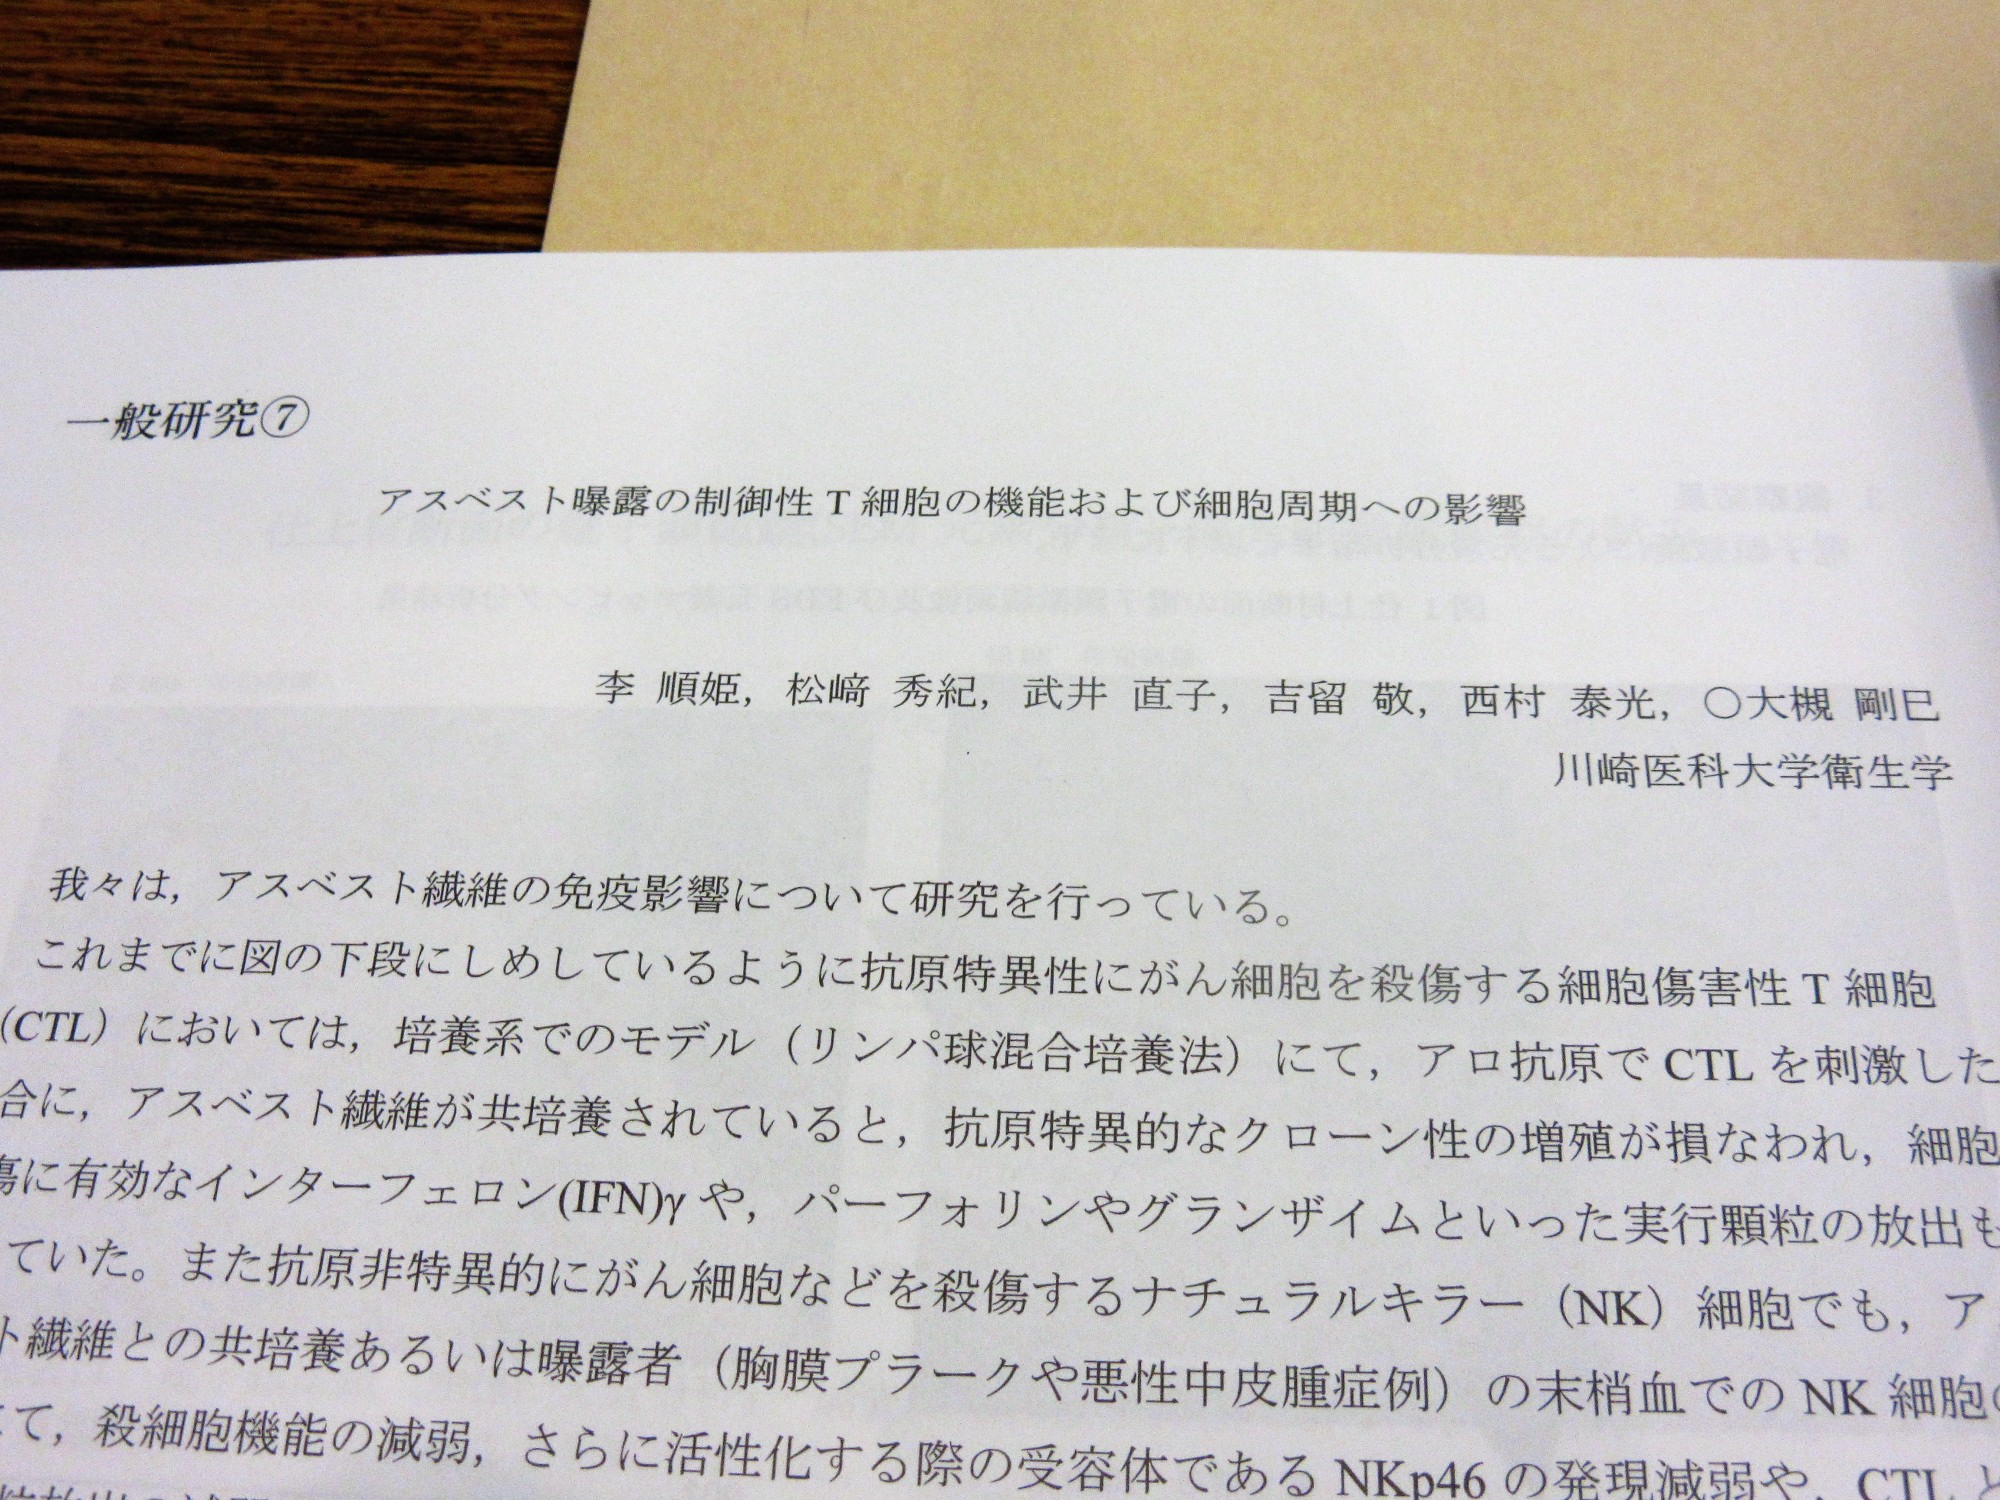 一般研究⑦
アスベスト曝露の制御性 T 細胞の機能および細胞周期への影響
李 順姫，松﨑 秀紀，武井 直子，吉留 敬，西村 泰光，○大槻 剛巳
川崎医科大学衛生学
我々は，アスベスト繊維の免疫影響について研究を行っている。
これまでに図の下段にしめしているように抗原特異性にがん細胞を殺傷する細胞傷害性 T 細胞
（CTL）においては，培養系でのモデル（リンパ球混合培養法）にて，アロ抗原で CTL を刺激した
合に，アスベスト繊維が共培養されていると，抗原特異的なクローン性の増殖が損なわれ，細胞
傷に有効なインターフェロン(IFN)γ や，パーフォリンやグランザイムといった実行顆粒の放出も
ていた。また抗原非特異的にがん細胞などを殺傷するナチュラルキラー（NK）細胞でも，ア
ト繊維との共培養あるいは曝露者（胸膜プラークや悪性中皮腫症例）の末梢血での NK 細胞の
て，殺細胞機能の減弱，さらに活性化する際の受容体である NKp46 の発現減弱や，CTL と